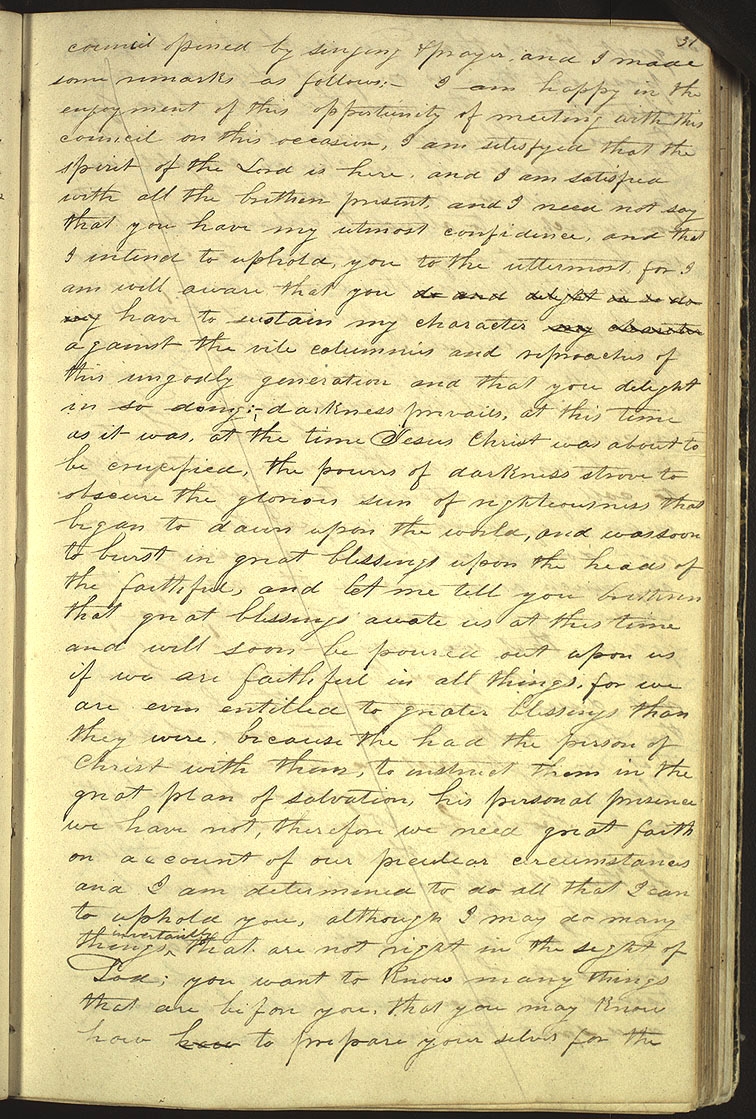 31
council opened by singing & prayer. and I made
some remarks as follows:— I am happy in the
enjoyment of this opportunity of meeting with this
council on this occasion, I am satisfyed that the
spirit of the Lord is here. and I am satisfied
with all the brethen present, and I need not say
that you have my utmost confidence, and that
I intend to uphold, you to the uttermost, for I
am well aware that you do and delight in so do
ing have to sustain my character my character
against the vile calumnies and reproaches of
this ungodly generation and that you delight
in so doing:— darkness prevails, at this time
as it was, at the time Jesus Christ was about to
be crucified, the powers of darkness strove to
obscure the glorious sun of righteousness that
began to dawn upon the world, and was soon
to burst in great blessings upon the heads of
the faithful, and let me tell you brethren
that great blessings awate us at this time
and will soon be poured out upon us
if we are faithful in all things, for we
are even entitled to greater blessings than
they were, because the had the person of
Christ with them, to instruct them in the
great plan of salvation, his personal presence
we have not, therefore we need great faith
on account of our peculiar circumstances
and I am determined to do all that I can
to uphold you, although I may do many
things invertaintly that are not right in the sight of
God; you want to know many things
that are before you, that you may know
how how to prepare your selves for the